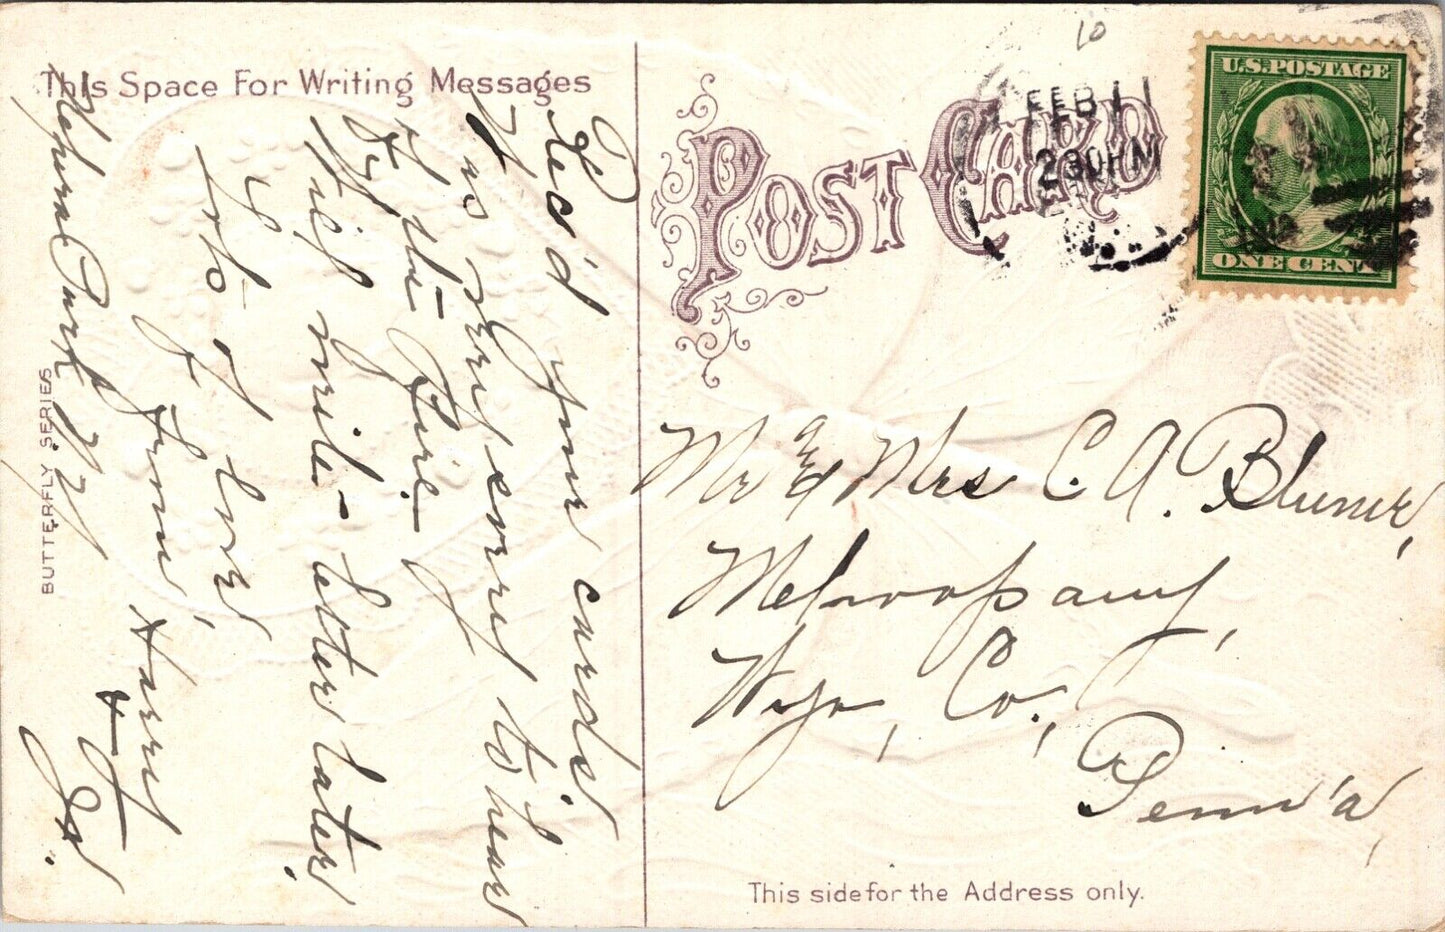 This Space For Writing Messages
Rec'd your cards
& was very sorry to hear
of the Fire.
Will write letters later
Lots of love
From, Harriet
& Jas.
Park N.Y.
BUTTERFLY SERIES
POST CARD
10
FEB 11
2 30 PM
U.S. POSTAGE
ONE CENT
Mr & Mrs C. A. Blumer,
Mehoopany,
Wyo, Co.,
Penn'a,
This side for the Address only.